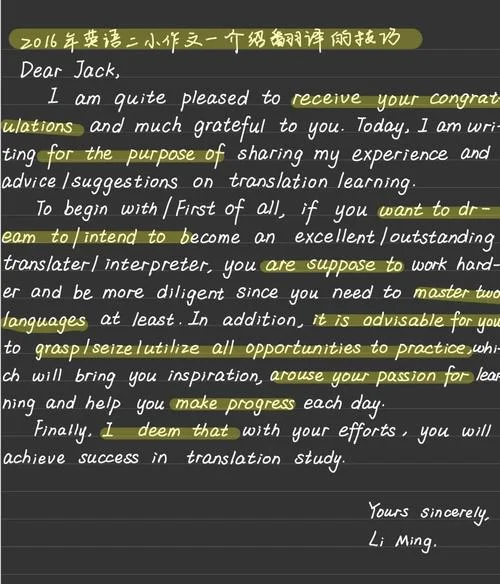 2016年英语二小作文一介绍翻译的技巧
Dear Jack,
I am quite pleased to receive your congrat-
ulations and much grateful to you. Today, I am wri-
ting for the purpose of sharing my experience and
advice/suggestions on translation learning.
To begin with/First of all, if you want to dr-
eam to/intend to become an excellent/outstanding
translater/interpreter, you are suppose to work hard-
er and be more diligent since you need to master two
languages at least. In addition, it is advisable for you
to grasp/seize/utilize all opportunities to practice, whi-
ch will bring you inspiration, arouse your passion for lear
ning and help you make progress each day.
Finally, I deem that with your efforts, you will
achieve success in translation study.
Yours sincerely,
Li Ming.